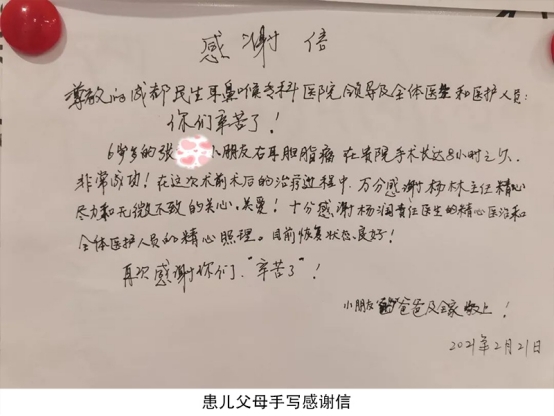 感谢信
尊敬的成都民生耳鼻喉专科医院领导及全体医生和医护人员:
你们辛苦了!
6岁多的张 小朋友右耳胆脂瘤在贵院手术长达8小时之久.
非常成功!在这次术前术后的治疗进程中.万分感谢杨林主任精心
尽力和无微不致的关心,关爱!十分感谢杨润责任医生的精心医治和
全体医护人员的精心照理。目前恢复状态良好!
再次感谢你们."辛苦了"!
小朋友 爸爸及全家敬上!
2021年2月21日
患儿父母手写感谢信